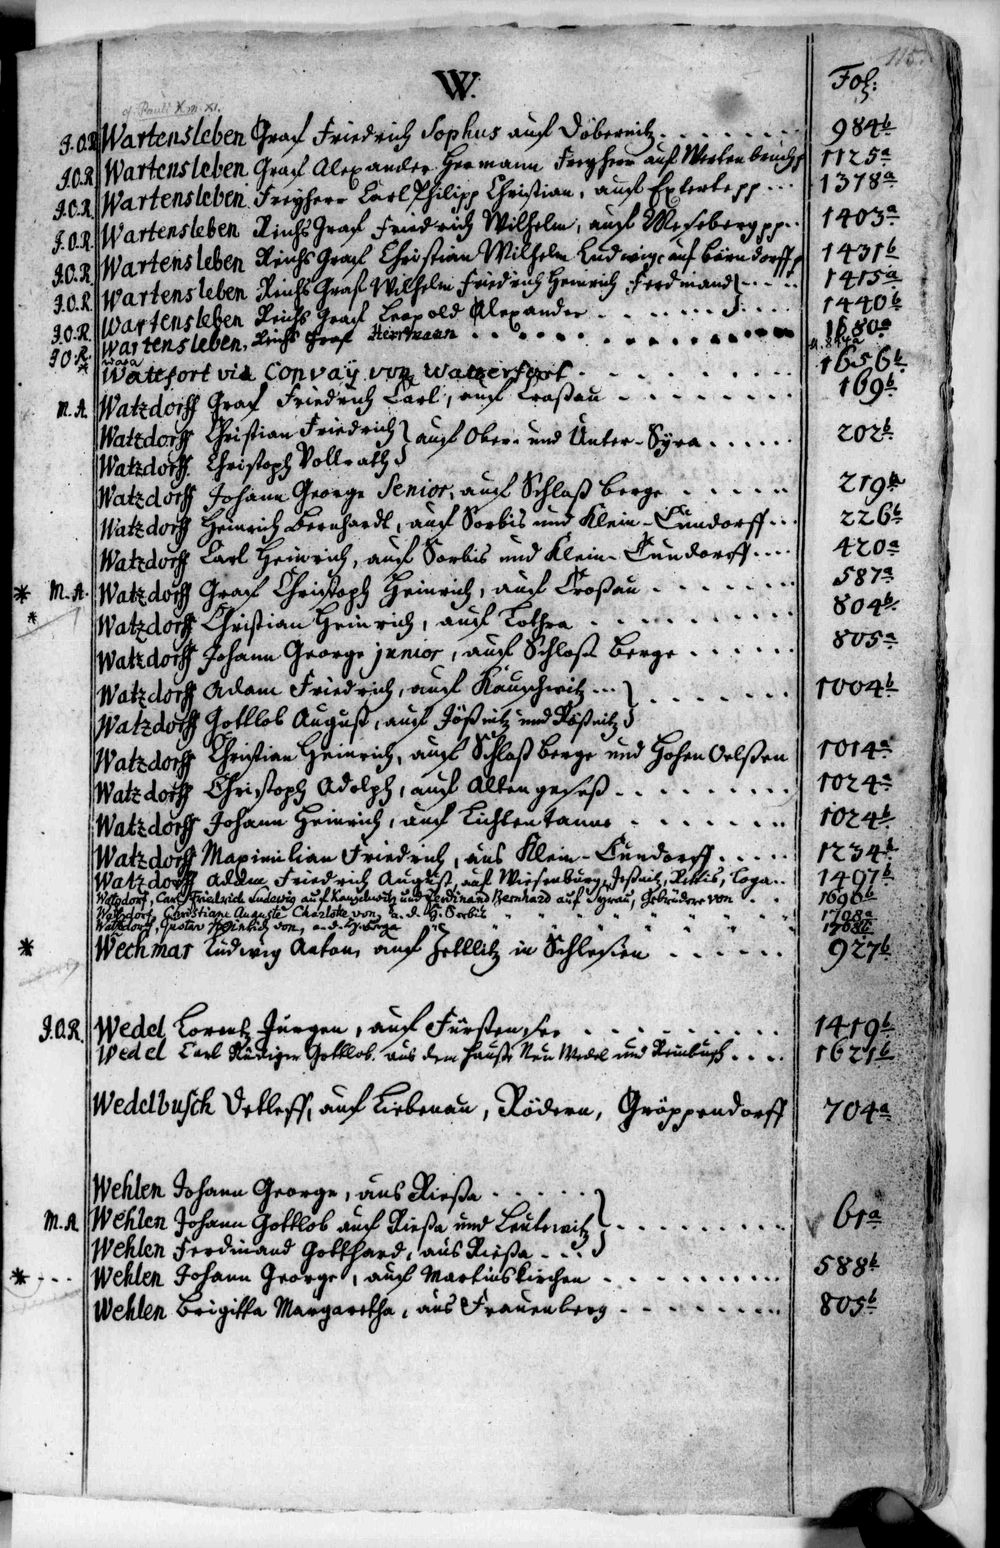 115.
W.
Fol:
cf. Pauli K. m. XI.
J.O.R. Wartensleben Graf Friedrich Sophus auf Döbernitz. . . . . . . . 984b.
J.O.R. Wartensleben Graf Alexander Hermann Freyherr auf 1125a
J.O.R. Wartensleben Freyherr Carl Philipp Christian, auf Extertepp . . . 1378a
J.O.R. Wartensleben Reichs Graf Friedrich Wilhelm, auf Meseberg pp. . 1403a
J.O.R. Wartensleben Reichs Graf Christian Wilhelm Ludwig auf Börndorff 1431b
J.O.R. Wartensleben Reichs Graf Wilhelm Friedrich Heinrich Ferdinand} . . . . 1415a
J.O.R. Wartensleben Reichs Graf Leopold Alexander . . . . . . . 1440b
J.O.R. Wartensleben, Reichs Graf Herrmann . . . . . . . . 1680a
* Watefort via Convay von Watterfort . . . . . . . . 1656b.
M.A. Watzdorff Graf Friedrich Carl, auf Croßau . . . . . . . . 169b.
Watzdorff Christian Friedrich } auf Ober- und Unter-Syra . . . . . . 202b.
Watzdorff Christoph Vollrath }
Watzdorff Johann George Senior, auf Schloß Berge . . . . . . 219b
Watzdorff Heinrich Bernhardt, auf Sorbis und Klein-Cundorff . . . 226b.
Watzdorff Carl Heinrich, auf Sorbis und Klein-Cundorff . . . . 420a
* M.A. Watzdorff Graf Christoph Heinrich, auf Croßau . . . . . . . 587a
* Watzdorff Christian Heinrich, auf Rothra . . . . . . . . 804b.
Watzdorff Johann George junior, auf Schloß Berge . . . . . . 805a
Watzdorff Adam Friedrich, auf Kauschwitz . . . } . . . . . . 1004b
Watzdorff Gottlob August, auf Jößnitz und Rößnitz }
Watzdorff Christian Heinrich, auf Schloß Berge und Hohen Oelßen 1014a
Watzdorff Christoph Adolph, auf Altengeseß . . . . . . . . 1024a
Watzdorff Johann Heinrich, auf Lichtentanne . . . . . . . 1024b
Watzdorff Maximilian Friedrich, aus Klein-Cundorff . . . . . 1234b
Watzdorff Adam Friedrich August auf Wiesenburg, Jeßnitz, Loga . . 1497b
Watzdorf, Carl Friedrich Ludewig auf Kauschwitz und Ferdinand Bernhard auf Syrau, Gebrüdere von . . 1696b
Watzdorf, Christiane Auguste Charlotte von, a. d. H. Sorbitz " " " " " " 1708a
Watzdorf, Gustav Heinrich von, a. d. H. Berga " " " " " " 1708b
* Wechmar Ludwig Anton, auf Zettlitz in Schlesien . . . . . . 927b.
J.O.R. Wedel Lorentz Jürgen, auf Fürstensee . . . . . . . . . 1419b
Wedel Carl Rüdiger Gottlob. aus dem Hause Neu Wedel und Reinbusch . . . . 1621b
Wedelbusch Detleff, auf Liebenau, Rödern, Gröppendorff 704a.
Wehlen Johann George, aus Rießa . . . . . }
M.A. Wehlen Johann Gottlob auf Rießa und Leutewitz } . . . . . . . . 61a
Wehlen Ferdinand Gotthard, aus Rießa . . . }
* . . . Wehlen Johann George, auf Martinskirchen . . . . . . . . . 588b
Wehlen Brigitta Margaretha, aus Frauenberg . . . . . . . . 805b.